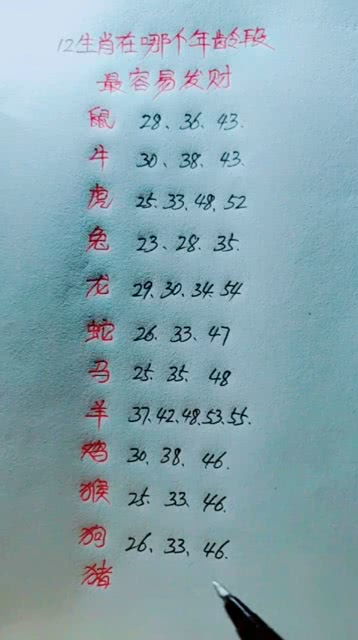 12生肖在哪个年龄段
最容易发财
鼠 28、36、43.
牛 30、38、43.
虎 25.33.48.52
兔 23、28、35.
龙 29.30.34.54
蛇 26、33、47
马 25、35、48
羊 37.42.48.53.55.
鸡 30、38、46.
猴 25、33、46.
狗 26、33、46.
猪